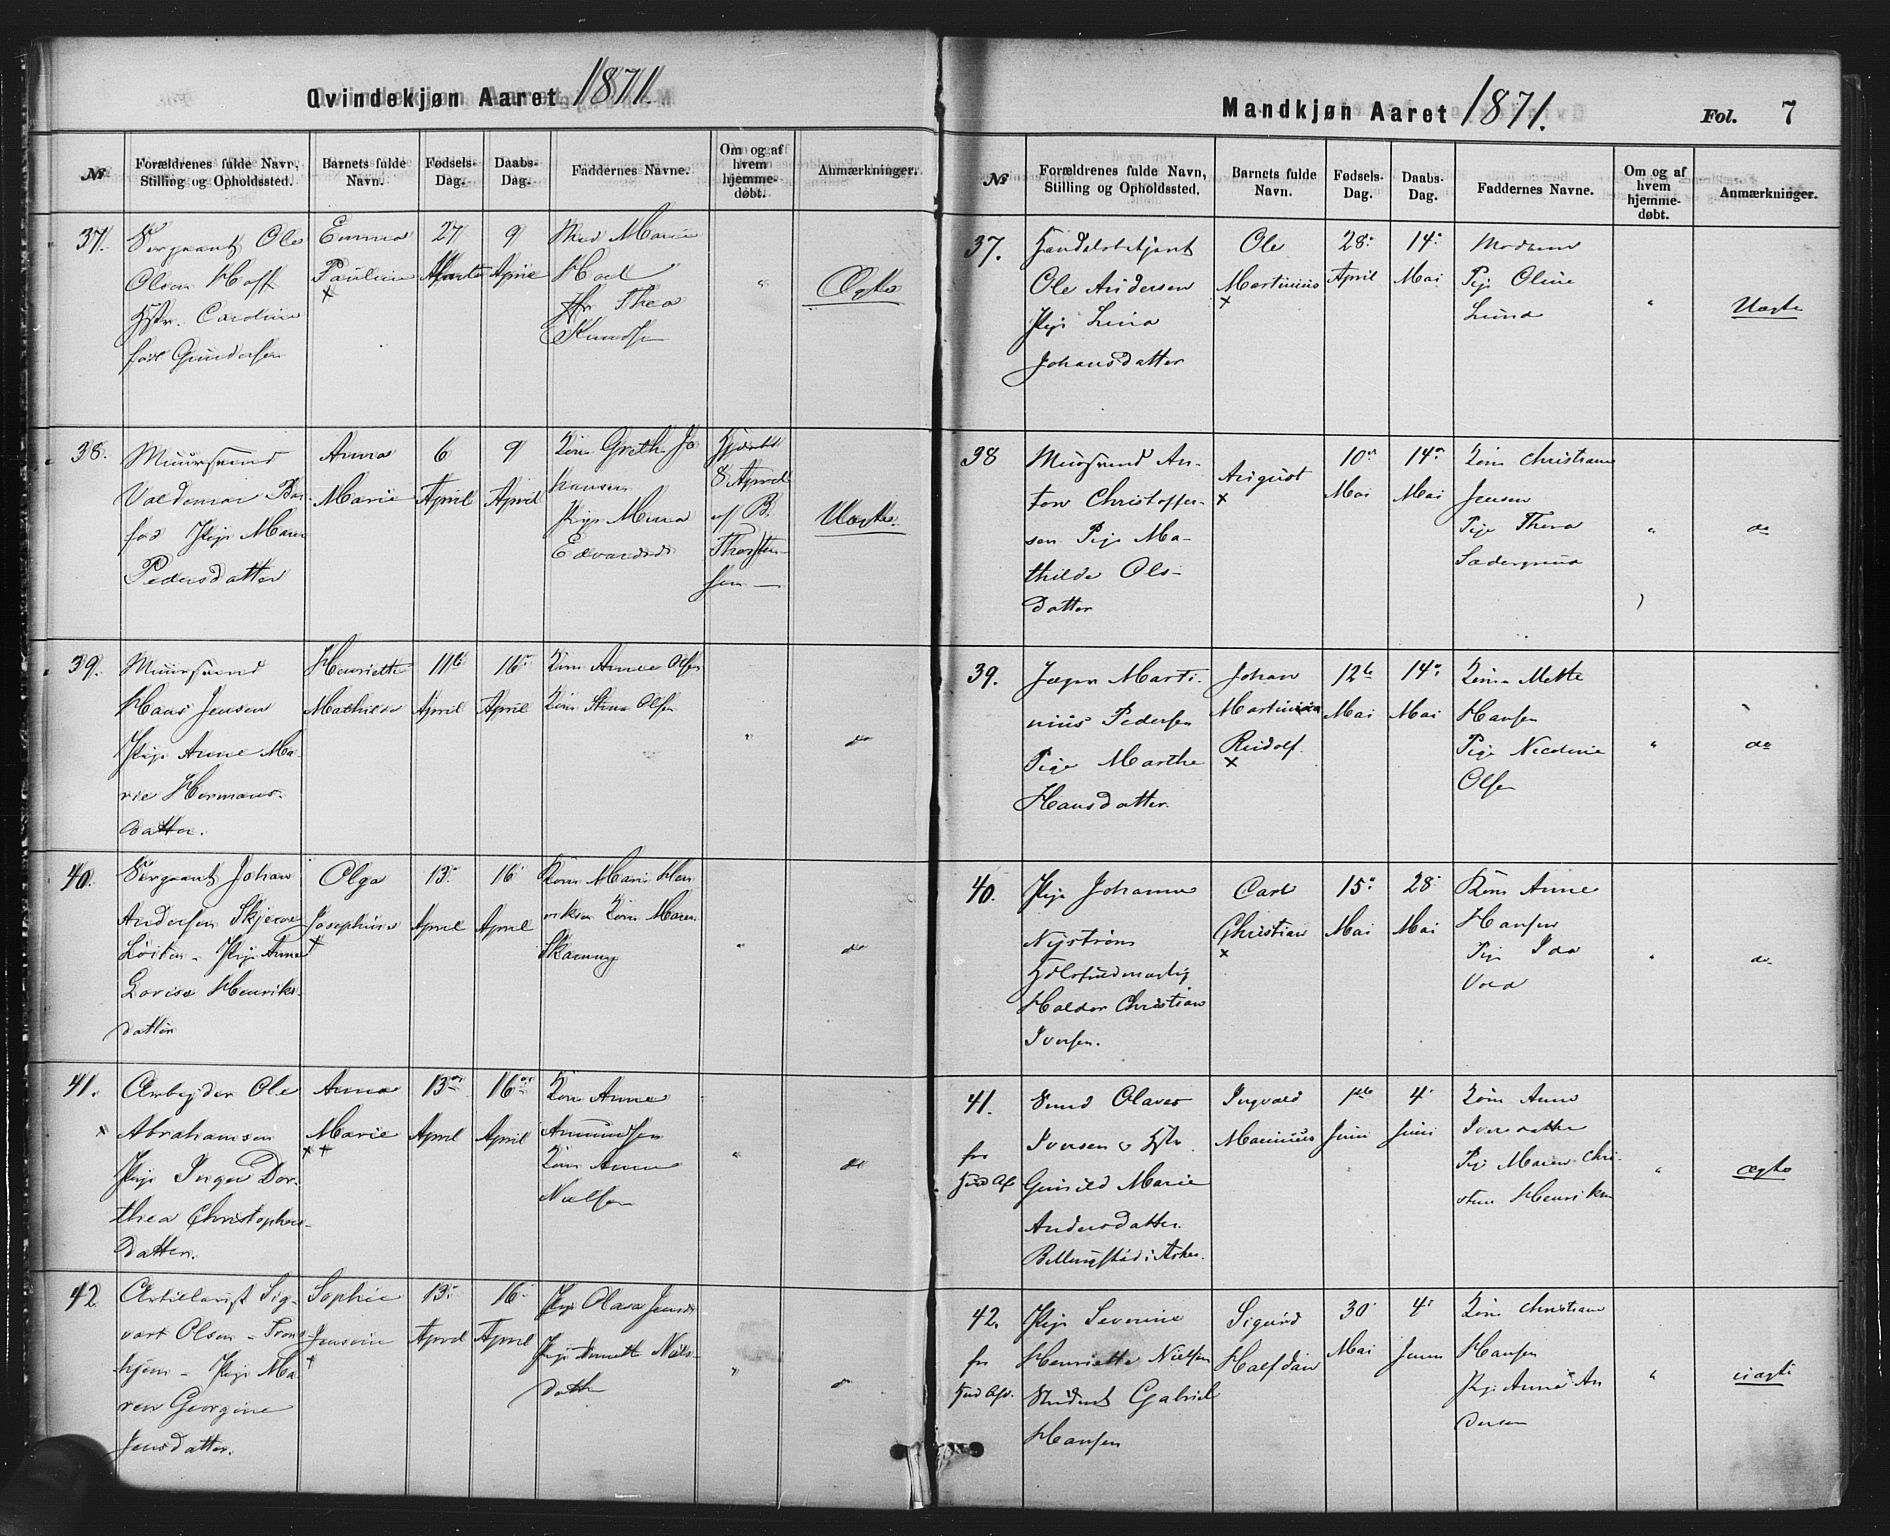 Qvindekjøn Aaret 1871.
№
Forældrenes fulde Navn, Stilling og Opholdssted.
Barnets fulde Navn.
Fødsels-Dag.
Daabs-Dag.
Faddernes Navne.
Om og af hvem hjemme-døbt.
Anmærkninger.
37.
Sergeant Ole
Olsen Hoff
Hstr. Caroline
født Gundersen
Emma
Pauline
×
27
Marts
9
April
Mad Marie
Hoel
Fr Thea
Knudsen
"
Ægte
38.
Muursvend
Valdemar
Pige Maren
Pedersdatter
Anna
Marie
6
April
9
April
Kone Grethe Jo
hansen
Pige Mina
Edvardsdt
Hjdøbt
8 April
af B.
Thorsten-
sen —
Uægte.
39.
Muursvend
Hans Jensen
Pige Anne Ma-
rie Hermans-
datter.
Henriette
Mathilde
11te
April
16
April
Kone Anne Olsen
Kone Stina Olsen
"
do
40.
Sergeant Johan
Andersen Skjerve
Løiten - Pige Anne
Lovise Henriks-
datter
Olga
Josephine
+
13
April
16
April
Kone Marie Hen
riksen Kone Maren
"
do
41.
×
Arbejder Ole
Abrahamsen
Pige Inger Dor-
thea Christophers-
datter.
Anna
Marie
× +
13
April
16
April
Kone Anne
Amundsen
Kone Anne
Nielsen
"
do
42
Artillerist Sig-
vart Olsen - Trond-
hjem - Pige Ma
ren Georgine
Jensdatter.
Sophie
Jensine
+
13
April
16
April
Pige Olava Jensdt
Pige Annette Niels-
datter
"
do
Mandkjøn Aaret 1871.
Fol. 7
№
Forældrenes fulde Navn, Stilling og Opholdssted.
Barnets fulde Navn.
Fødsels-Dag.
Daabs-Dag.
Faddernes Navne.
Om og af hvem hjemme-døbt.
Anmærkninger.
37.
Handelsbetjent
Ole Andersen
Pige Lina
Johansdatter
Ole
Martinius
×
28
April
14
Mai
Madame
Pige Oline
Lund
"
Uægte
38
Muursvend An-
ton Christoffer-
sen Pige Ma-
thilde Ols-
datter
August
×
10
Mai
14
Mai
Kone Christiane
Jensen
Pige Thera
"
do
39.
Jæger Marti-
nius Pedersen
Pige Marthe
Hansdatter
Johan
Rudolf
×
12te
Mai
14
Mai
Kone Mette
Hansen
Pige Nicoline
Olsen
"
do
40.
Pige Johanne
Nystrøm
Halvor Christian
Iversen.
Carl
Christian
×
15
Mai
28
Mai
Kone Anne
Hansen
Pige Ida
Vold
"
do
41.
fra
Svend Olaves
Iversen & Hstr.
Gunild Marie
Andersdatter.
Billingstad i Asker.
Ingvald
Marinius
1ste
Juni
4
Juni
Kone Anne
Iversdatter
Pige Maren Chri-
stine Henriksen
"
ægte
42.
fra
Pige Severine
Henriette Nielsen
Student Gabriel
Hansen
Sigurd
Halfdan
30
Mai
4
Juni
Kone Christiane
Hansen
Pige Anne An
dersen
"
uægte